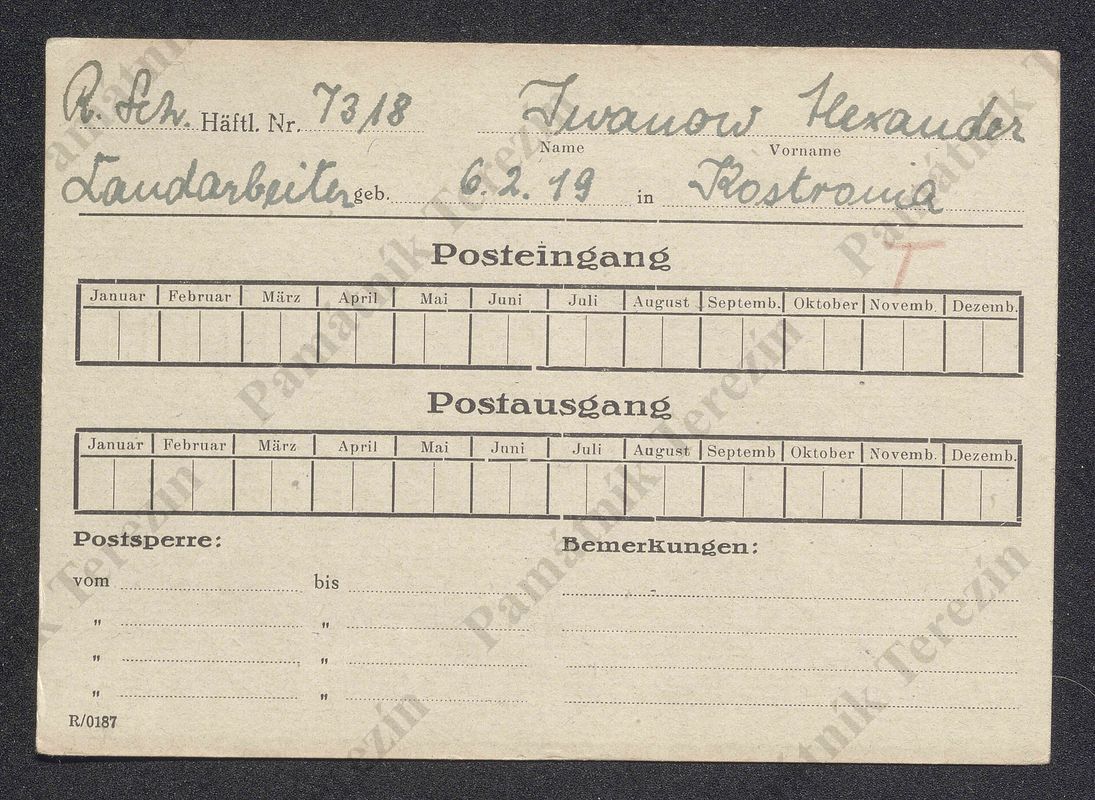 R. Sch. Häftl. Nr. 7318 Iwanow Alexander
Name Vorname
Landarbeiter geb. 6. 2. 19 in Kostroma
T
Posteingang
Januar Februar März April Mai Juni Juli August Septemb. Oktober Novemb. Dezemb.
Postausgang
Januar Februar März April Mai Juni Juli August Septemb Oktober Novemb. Dezemb.
Postsperre: Bemerkungen:
vom bis
" "
" "
" "
R/0187
Památník Terezín